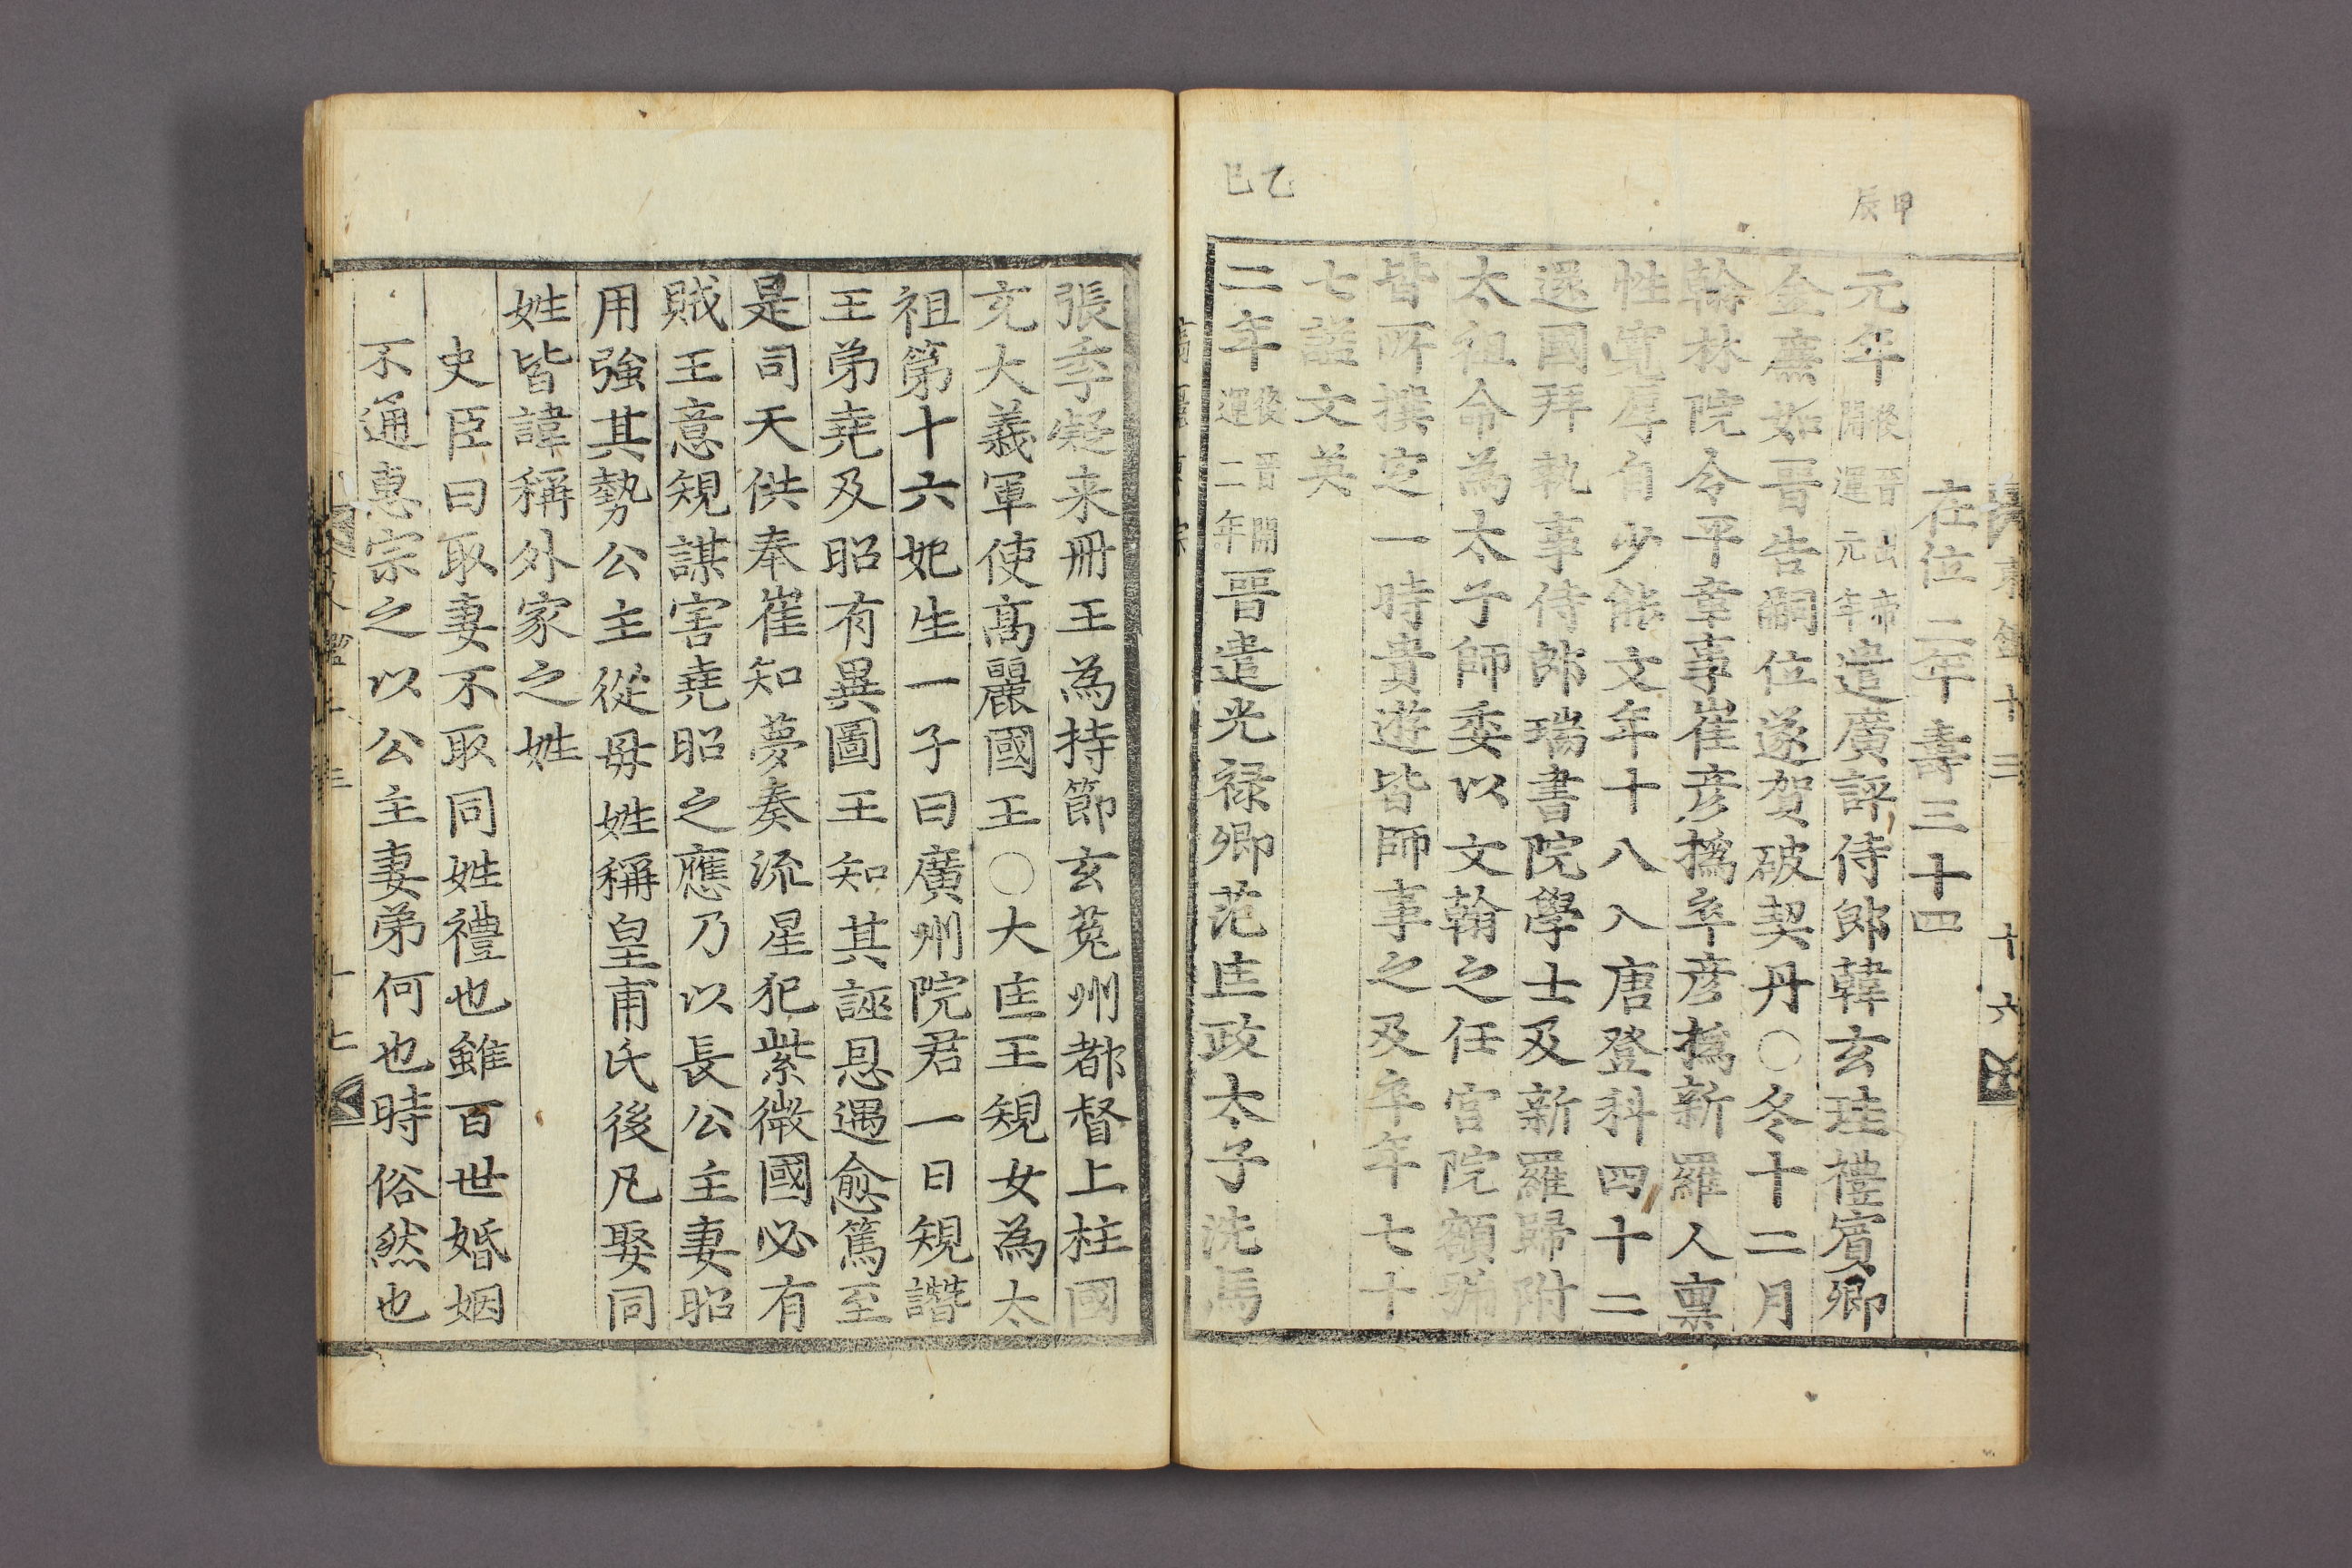 甲辰
乙巳
東鑑十三 十六
在位二年壽三十四
元年後晉出帝開運元年遣廣評侍郎韓玄珪禮賓卿
金廉如晋告嗣位遂賀破契丹○冬十二月
翰林院令平章事崔彦撝卒彦撝新羅人禀
性寛厚自少能文年十八入唐登科四十二
還國拜執事侍郎瑞書院學士及新羅歸附
太祖命為太子師委以文翰之任宫院額號
皆所撰定一時貴遊皆師事之及卒年七十
七謚文英
二年後晋開運二年晋遣光禄卿范匡政太子洗馬
張季凝来冊王為持節玄菟州都督上柱國
充大義軍使髙麗國王○大匡王規女為太
祖第十六妃生一子曰廣州院君一日規譖
王弟堯及昭有異圖王知其誣恩遇愈篤至
是司天供奉崔知夢奏流星犯紫微國必有
賊王意規謀害堯昭之應乃以長公主妻昭
用強其勢公主從母姓稱皇甫氏後凡娶同
姓皆諱稱外家之姓
史臣曰取妻不取同姓禮也雖百世婚姻
不通惠宗之以公主妻弟何也時俗然也
鑑十三 十七